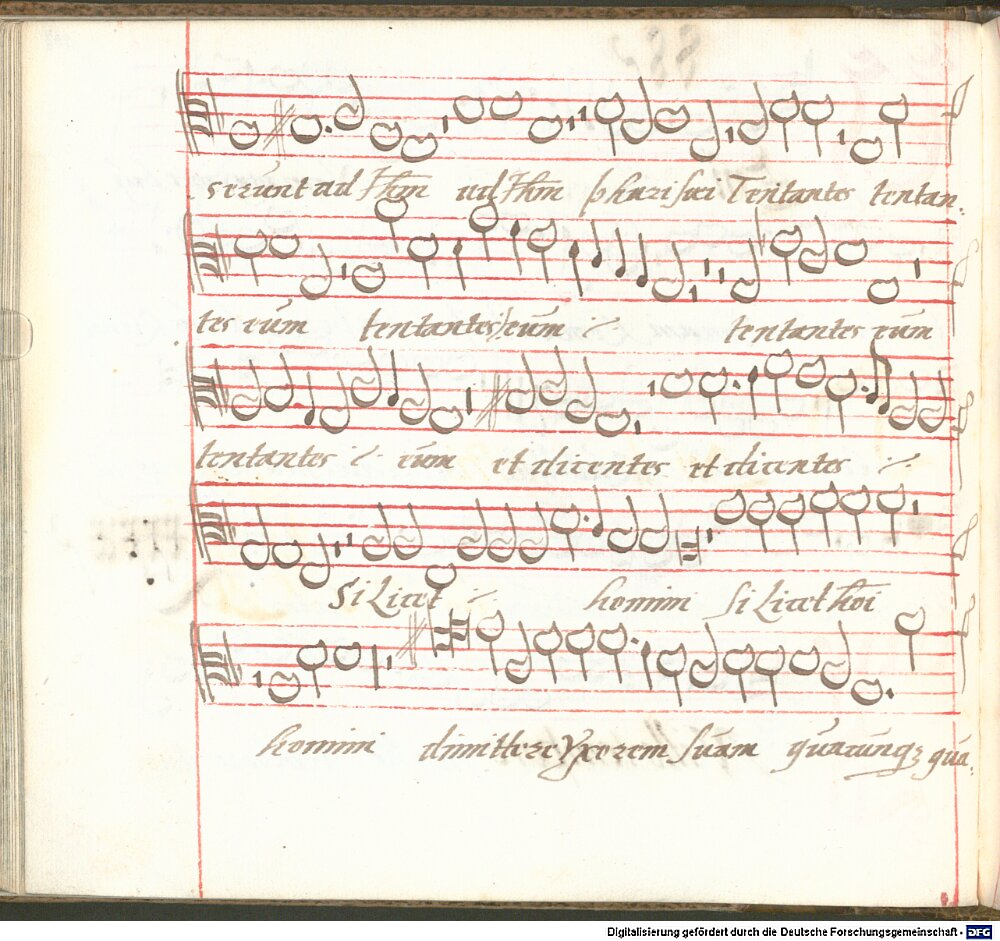 serunt ad Jhm̄ ad Jhm̄ pharisaei Tentantes tentan:
tes eūm tentantes eūm ·/. tentantes eūm
tentantes ·/. eūm et dicentes et dicentes ·/.
Si Licet ·/. homini si Licet hoī
homini dimittere Vxorem suam quacunq; qua:
Digitalisierung gefördert durch die Deutsche Forschungsgemeinschaft - DFG